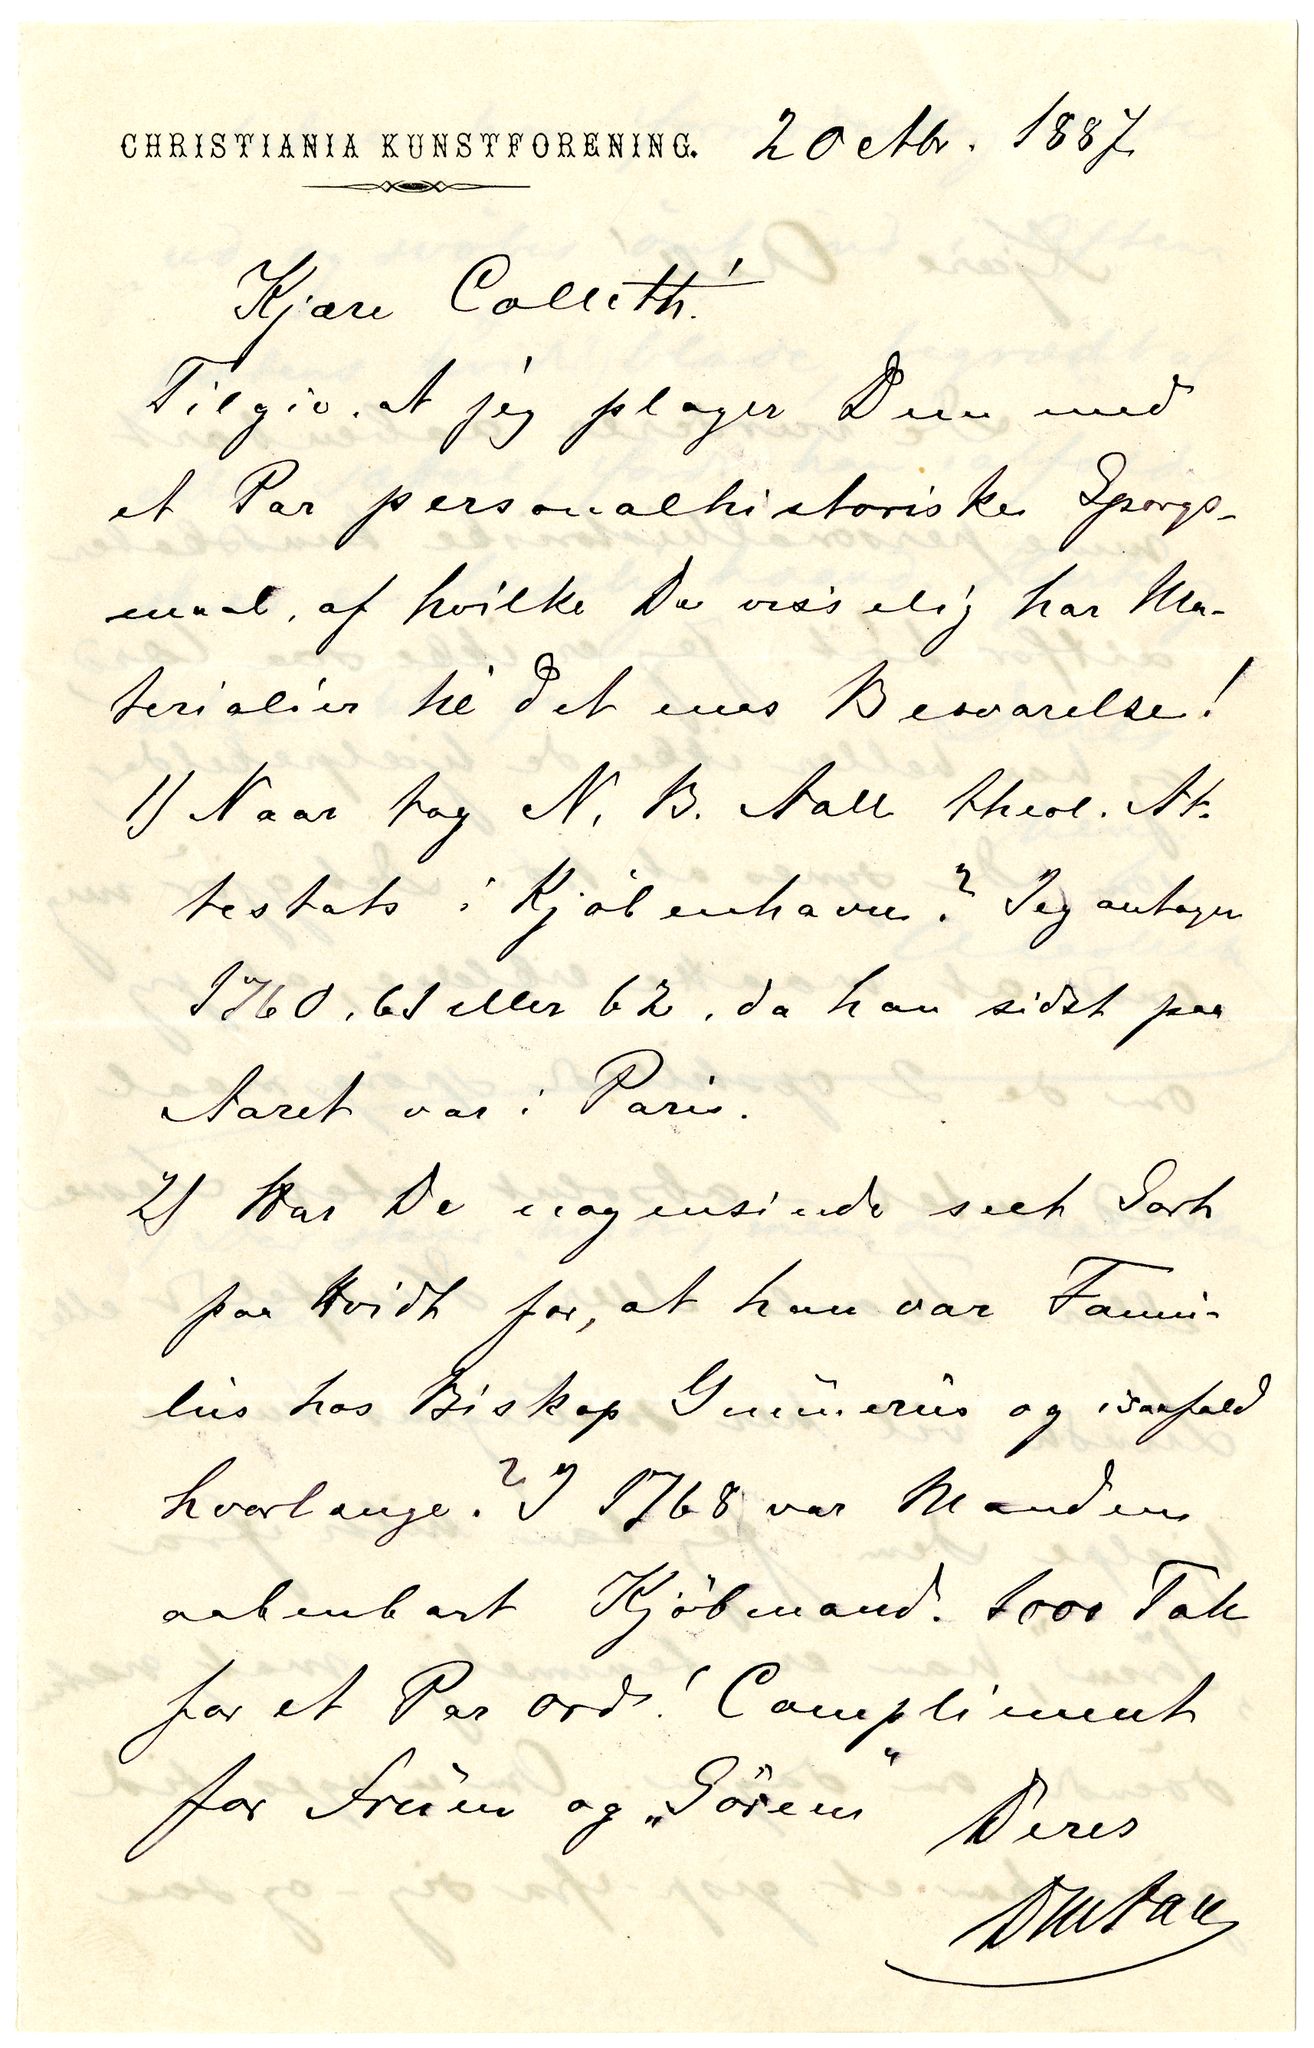 CHRISTIANIA KUNSTFORENING. 2 Octbr. 1887
Kjære Collett!
Tilgiv, at jeg plager Dem med
et Par personalhistoriske Spørgs-
maal, af hvilke De visselig har Ma-
terialier til det enes Besvarelse!
1) Naar tog N. B. Aall theol. At-
testats i Kjöbenhavn? Jeg antager
1760, 61 eller 62, da han sidst paa
Aaret var i Paris.
2) Har De nogensinde seet Sort
paa Hvidt for, at han var Famu-
lus hos Biskop Gunnerus og isaafald
hvorlænge? I 1768 var Manden
aabenbart Kjöbmand. 1000 Tak
for et Par Ord! Compliment
for Fruen og „Sören“
Deres